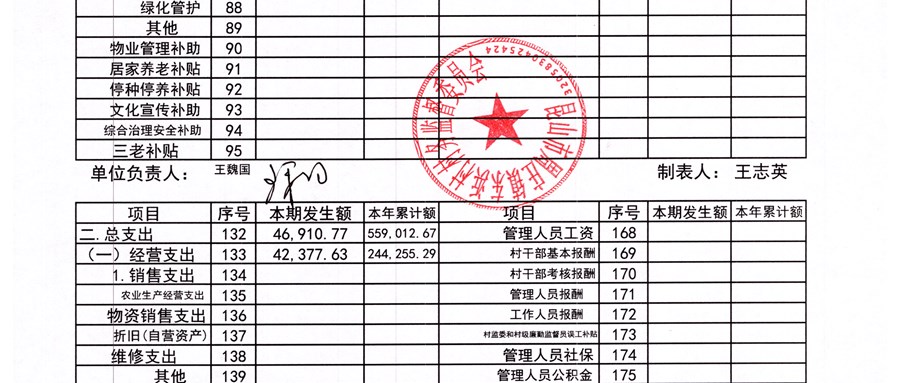 绿化管护 88
其他 89
物业管理补助 90
居家养老补贴 91
停种停养补贴 92
文化宣传补助 93
综合治理安全补助 94
三老补贴 95
3205830425424
昆山市周庄镇东浜村村务监督委员会
单位负责人： 王魏国 制表人： 王志英
项目 序号 本期发生额 本年累计额 项目 序号 本期发生额 本年累计额
二.总支出 132 46,910.77 559,012.67 管理人员工资 168
（一）经营支出 133 42,377.63 244,255.29 村干部基本报酬 169
1.销售支出 134 村干部考核报酬 170
农业生产经营支出 135 管理人员报酬 171
物资销售支出 136 工作人员报酬 172
折旧(自营资产) 137 村监委和村级廉勤监督员误工补贴 173
维修支出 138 管理人员社保 174
其他 139 管理人员公积金 175